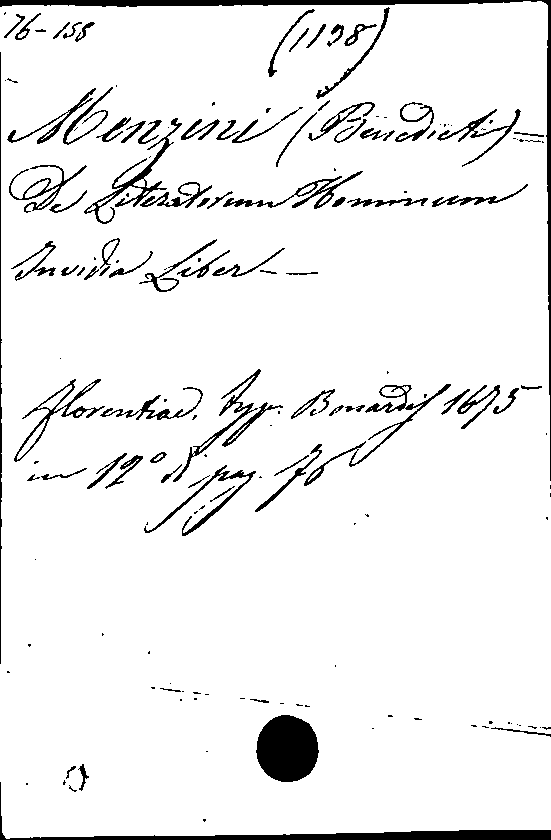 76-158 (1198)
Menzini (Benedicti) —
De Literatorum Hominum
Invidia Liber — —
Florentiae, typ. Bonardis 1675
in 12° di pag. 76